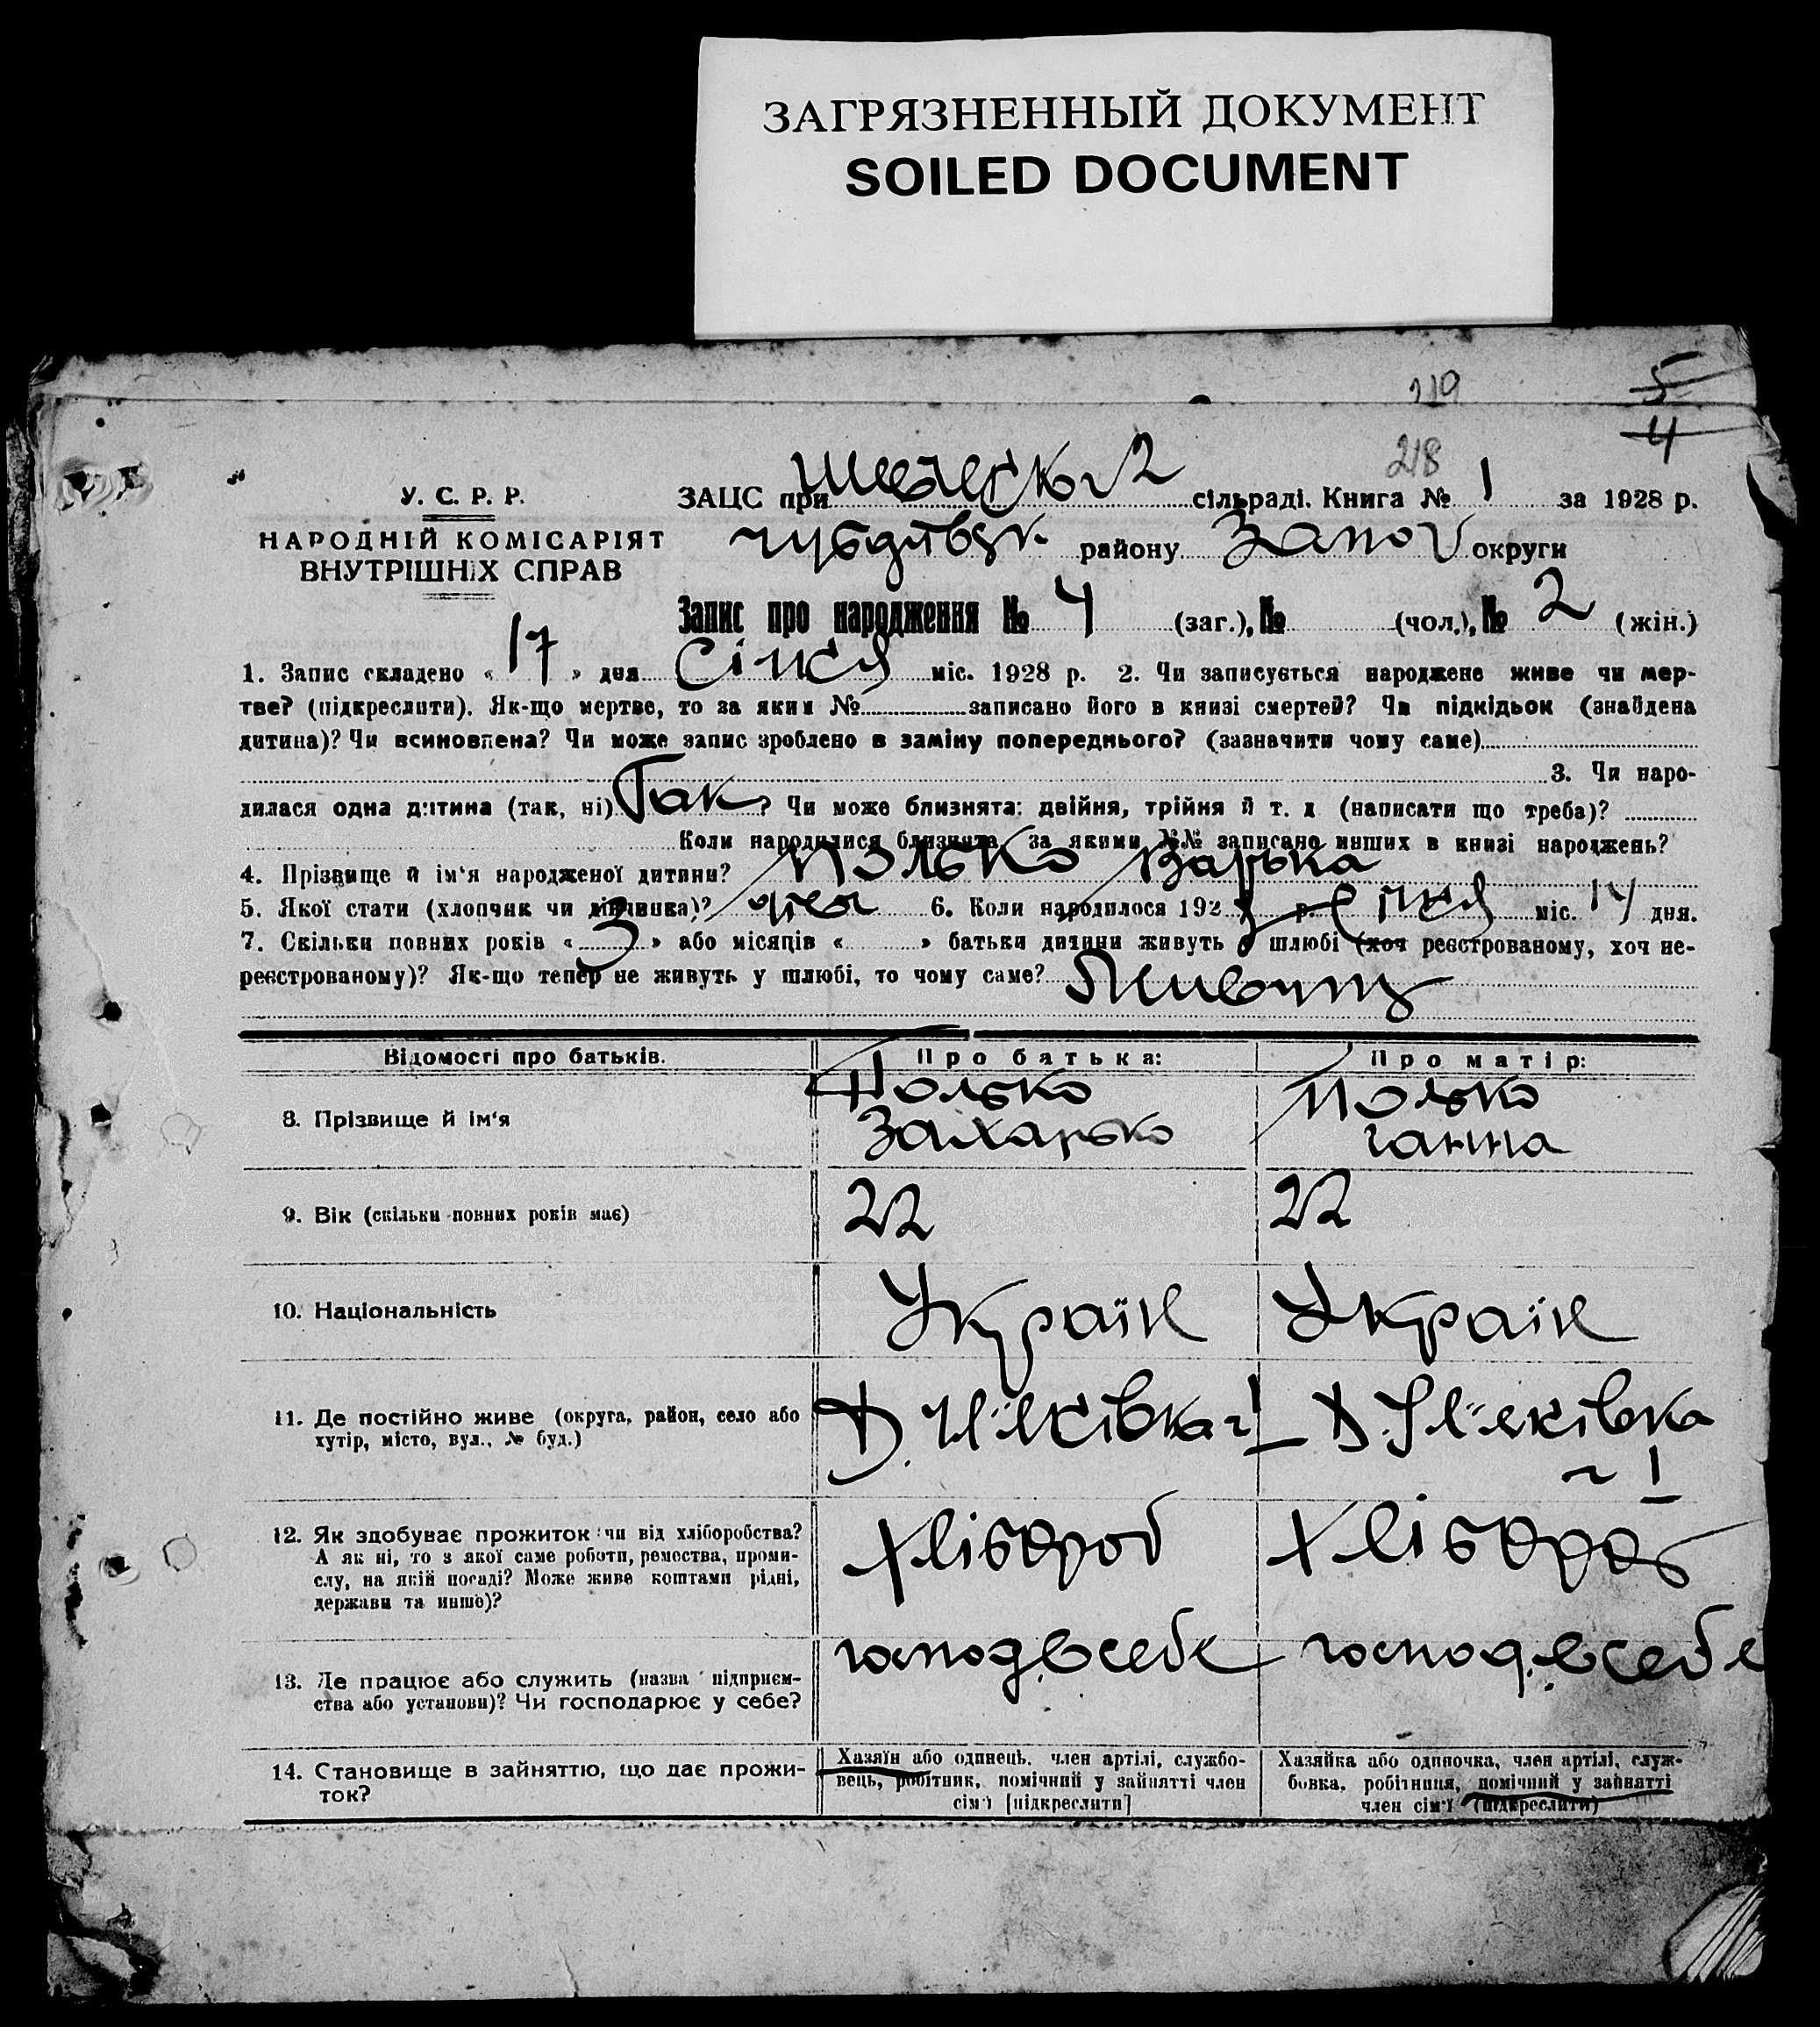 ЗАГРЯЗНЕННЫЙ ДОКУМЕНТ
SOILED DOCUMENT
219
5
4
218
У. С. Р. Р.
НАРОДНІЙ КОМІСАРІЯТ
ВНУТРІШНІХ СПРАВ
ЗАЦС при сільраді. Книга № 1 за 1928 р.
району Запор округи
Запис про народження № 4 (заг.), № (чол.), № 2 (жін.)
1. Запис складено « 17 » дня Січня міс. 1928 р. 2. Чи записується народжене живе чи мер-
тве? (підкреслити). Як-що мертве, то за яким № записано його в книзі смертей? Чи підкідьок (знайдена
дитина)? Чи всиновлена? Чи може запис зроблено в заміну попереднього? (зазначити чому саме)
3. Чи наро-
дилася одна дитина (так, ні) Так ? Чи може близнята: двійня, трійня й т. д (написати що треба)?
Коли народилися близнята, за якими №№ записано инших в книзі народжень?
4. Прізвище й ім'я народженої дитини? Полько Варька
5. Якої стати (хлопчик чи дівчинка)? 6. Коли народилося 1928 р. Січня міс. 14 дня.
7. Скільки повних років « 3 » або місяців « » батьки дитини живуть у шлюбі (хоч реєстрованому, хоч не-
реєстрованому)? Як-що тепер не живуть у шлюбі, то чому саме? Живуть
Відомості про батьків. Про батька: Про матір:
8. Прізвище й ім'я Полько Захарько Полько ганна
9. Вік (скільки повних років має) 22 22
10. Національність Україн Україн
11. Де постійно живе (округа, район, село або
хутір, місто, вул., № буд.)
12. Як здобуває прожиток чи від хліборобства? Хлібороб Хлібороб
А як ні, то з якої саме роботи, ремества, проми-
слу, на якій посаді? Може живе коштами рідні,
держави та инше)?
13. Де працює або служить (назва підприєм- господ. в себе господ. в себе
ства або установи)? Чи господарює у себе?
14. Становище в зайняттю, що дає прожи-
ток?
Хазяїн або одинець, член артілі, службо-
вець, робітник, помічний у зайнятті член
сім'ї [підкреслити]
Хазяйка або одиночка, член артілі, служ-
бовка, робітниця, помічний у зайнятті
член сім'ї (підкреслити)